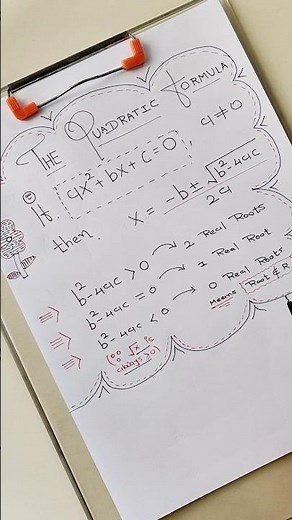 The Quadratic Formula
If ax²+bx+c=0, a≠0
then, x = -b ± √b²-4ac / 2a
⇒ b²-4ac > 0 → 2 Real Roots
⇒ b²-4ac = 0 → 1 Real Root
⇒ b²-4ac < 0 → 0 Real Roots
(∵ √x is always ≥0) means Root ∉ R